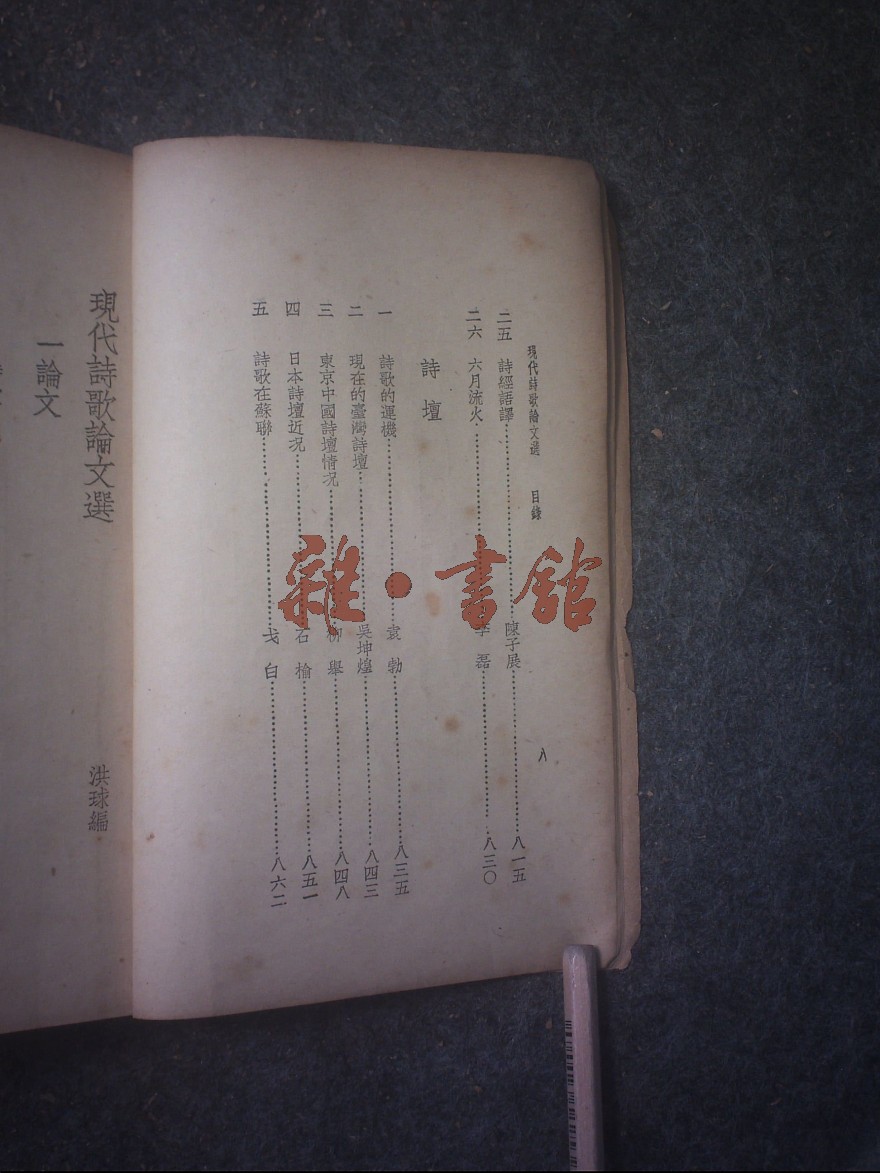 現代詩歌論文選 目錄 八
二五 詩經語譯 陳子展 八一五
二六 六月流火 李磊 八三〇
詩壇
一 詩歌的運機 袁勃 八三五
二 現在的臺灣詩壇 吳坤煌 八四三
三 東京中國詩壇情况 柳舉 八四八
四 日本詩壇近况 石榆 八五一
五 詩歌在蘇聯 戈白 八六二
現代詩歌論文選
洪球編
一論文
雜·書館